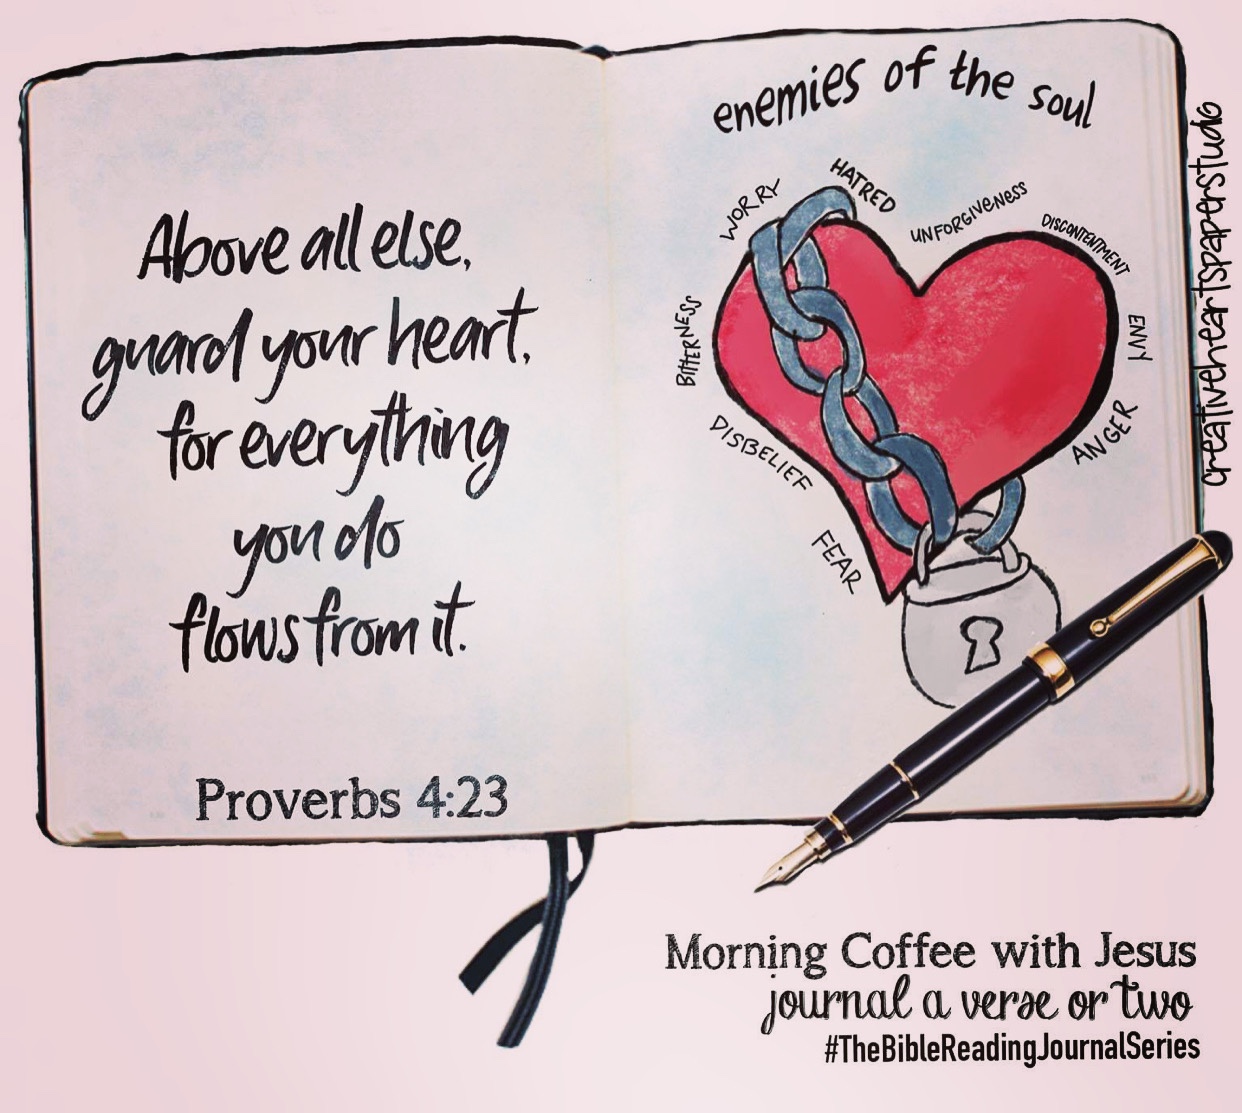 Above all else,
guard your heart,
for everything
you do
flows from it.
Proverbs 4:23
enemies of the soul
WORRY
HATRED
UNFORGIVENESS
DISCONTENTMENT
ENVY
ANGER
BITTERNESS
DISBELIEF
FEAR
creativeheartspaperstudio
Morning Coffee with Jesus
journal a verse or two
#TheBibleReadingJournalSeries